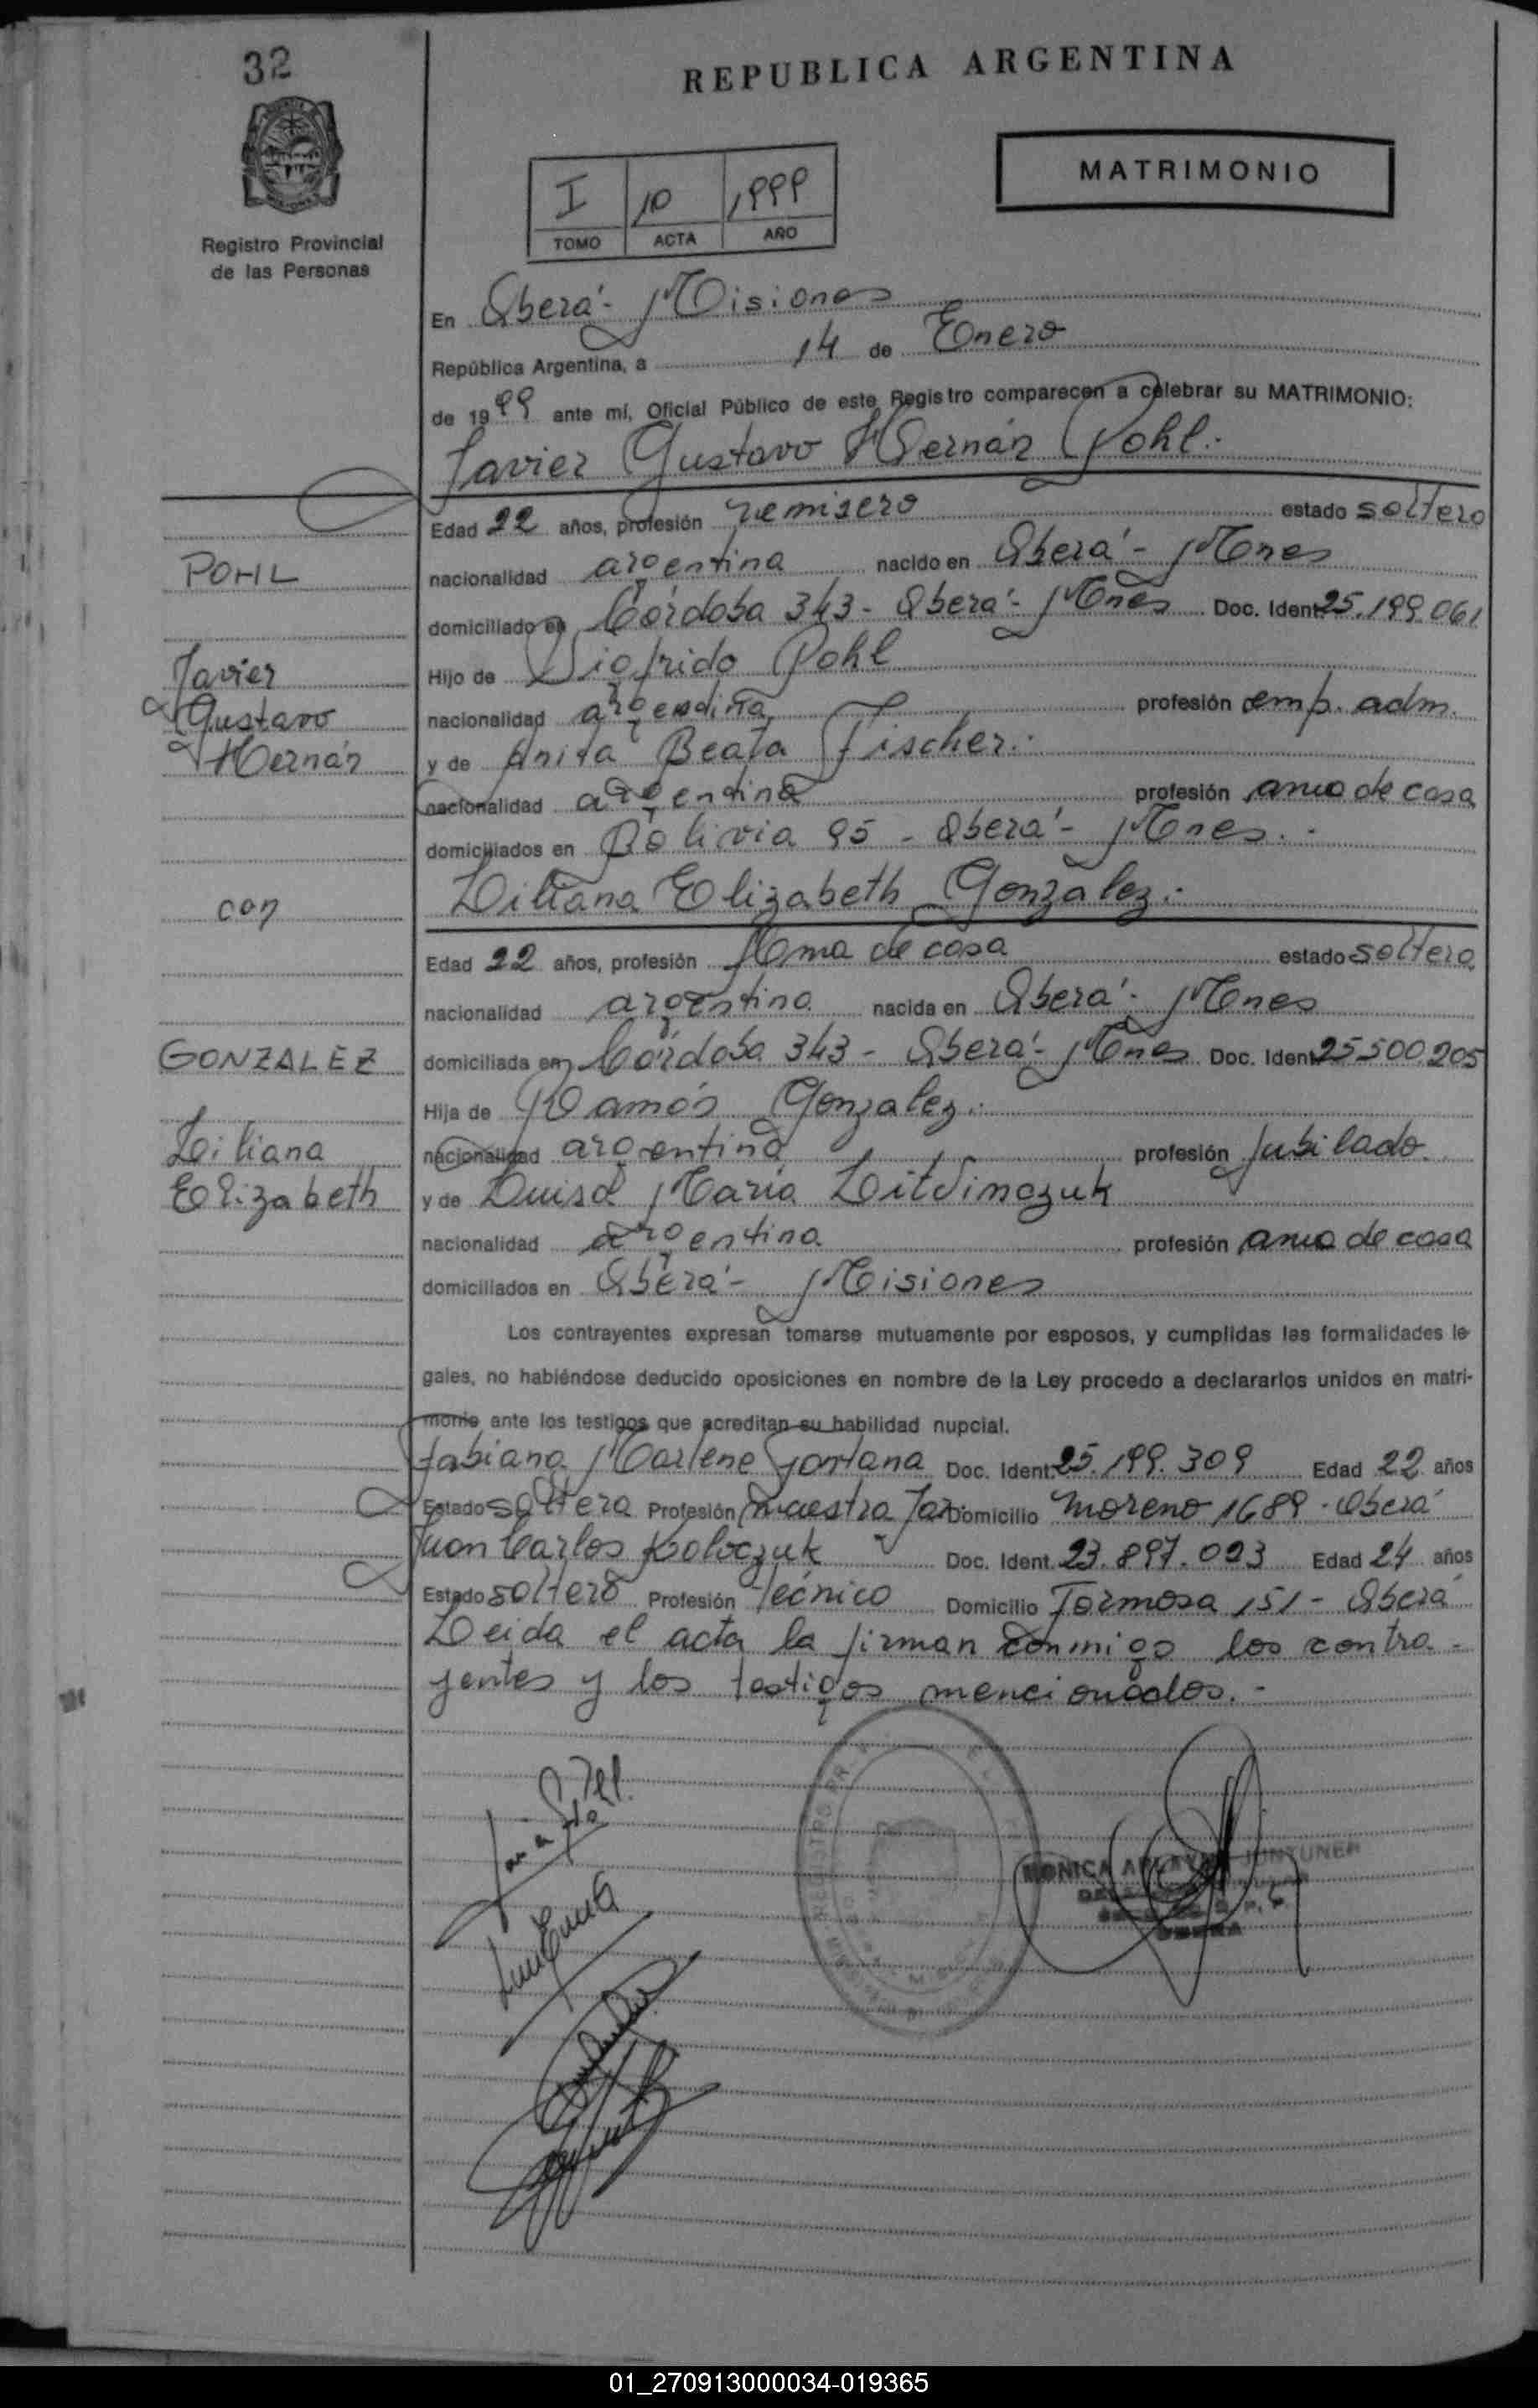 32
REPUBLICA ARGENTINA
MATRIMONIO
I 10 1999
TOMO ACTA AÑO
Registro Provincial
de las Personas
En Oberá - Misiones
República Argentina, a 14 de Enero
de 1999 ante mí, Oficial Público de este Registro comparecen a celebrar su MATRIMONIO:
Javier Gustavo Hernán Pohl.-
Edad 22 años, profesión remisero estado soltero
POHL
nacionalidad argentina nacido en Oberá - Mnes
domiciliado en Córdoba 343 - Oberá - Mnes Doc. Ident. 25.199.061
Javier
Hijo de Sigfrido Pohl
Gustavo
nacionalidad argentina profesión emp. adm.
Hernán
y de Anita Beata Fischer.-
nacionalidad argentina profesión ama de casa
domiciliados en Bolivia 95 - Oberá - Mnes.-
con
Liliana Elizabeth Gonzalez.-
Edad 22 años, profesión Ama de casa estado soltera
nacionalidad argentina nacida en Oberá - Mnes
GONZALEZ
domiciliada en Córdoba 343 - Oberá - Mnes Doc. Ident. 25.500.205
Hija de Ramón Gonzalez.-
Liliana
nacionalidad argentina profesión Jubilado
Elizabeth
y de Luisa María Litvinczuk
nacionalidad argentina profesión ama de casa
domiciliados en Oberá - Misiones
Los contrayentes expresan tomarse mutuamente por esposos, y cumplidas las formalidades le-
gales, no habiéndose deducido oposiciones en nombre de la Ley procedo a declararlos unidos en matri-
monio ante los testigos que acreditan su habilidad nupcial.
Fabiana Marlene Fontana Doc. Ident. 25.199.309 Edad 22 años
Estado soltera Profesión maestra Jar. Domicilio Moreno 1689 - Oberá
Juan Carlos Doc. Ident. 23.897.023 Edad 24 años
Estado soltero Profesión Técnico Domicilio Formosa 151 - Oberá
Leida el acta la firman conmigo los contra-
yentes y los testigos mencionados.-
MONICA JUNTUNEN
OBERA
01_270913000034-019365